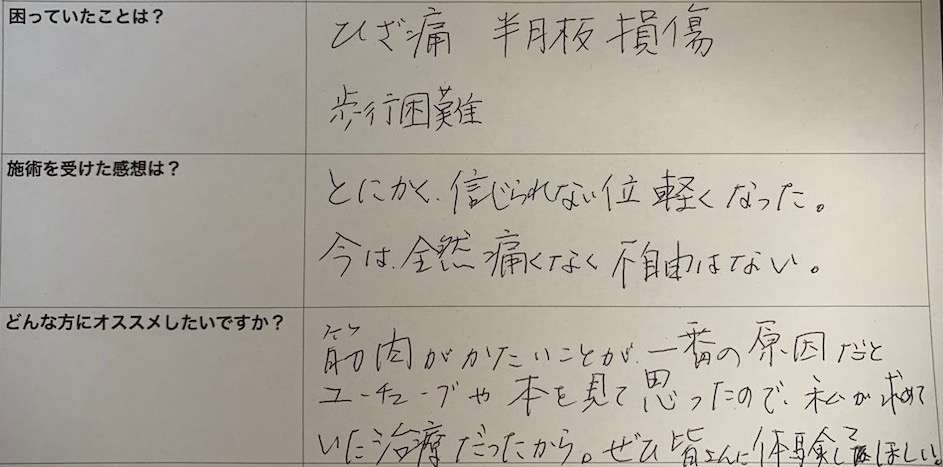 困っていたことは？
ひざ痛 半月板損傷
歩行困難
施術を受けた感想は？
とにかく、信じられない位軽くなった。
今は、全然痛くなく不自由はない。
どんな方にオススメしたいですか？
筋肉がかたいことが、一番の原因だと
ユーチューブや本を見て思ったので、私が求めて
いた治療だったから。ぜひ皆さんに体験してほしい。